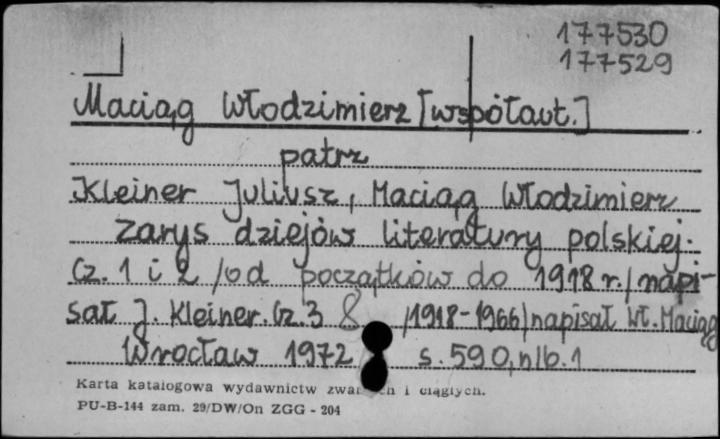 177530
177529
Maciąg Włodzimierz [współaut.]
patrz
Kleiner Juliusz, Maciąg Włodzimierz
Zarys dziejów literatury polskiej.
Cz. 1 i 2 /od początków do 1918 r./ napi-
sał J. Kleiner. Cz. 3 /1918-1966/ napisał Wł. Maciąg
Wrocław 1972 s. 590, nlb. 1
Karta katalogowa wydawnictw i ciągłych.
PU-B-144 zam. 29/DW/On ZGG - 204